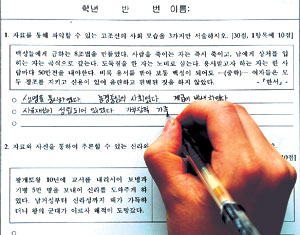 학년 반 번 이름:
1. 자료를 통해 파악할 수 있는 고조선의 모습을 3가지만 서술하시오. [30점, 1항목에 10점]
백성들에게 금하는 8조법을 만들었다. 사람을 죽이는 자는 즉시 죽이고, 남에게 상처를 입
히는 자는 곡식으로 갚는다. 도둑질을 한 자는 노비로 삼는다. 용서받고자 하는 자는 한 사
람마다 50만전을 내야한다. 비록 용서를 받아 보통 백성이 되어도 …(중략)… 여자들은 모
두 정조를 지키고 신용이 있어 음란하고 편벽된 짓을 하지 않았다. -『한서』-
○ 생명을 중시하였다 농경중심의 사회였다 계급이
○ 사유재산이 성립되어 있었다 가부장적 가족
2. 자료와 사진을 통하여 추론할 수 있는 신라와
광개토왕 10년에 교서를 내리시어 보병과
기병 5만 명을 보내어 신라를 도와주게 하
였다. 남거성부터 신라성까지 왜가 가득하
더니 왕의 군대가 이르자 왜적이 도망갔다.